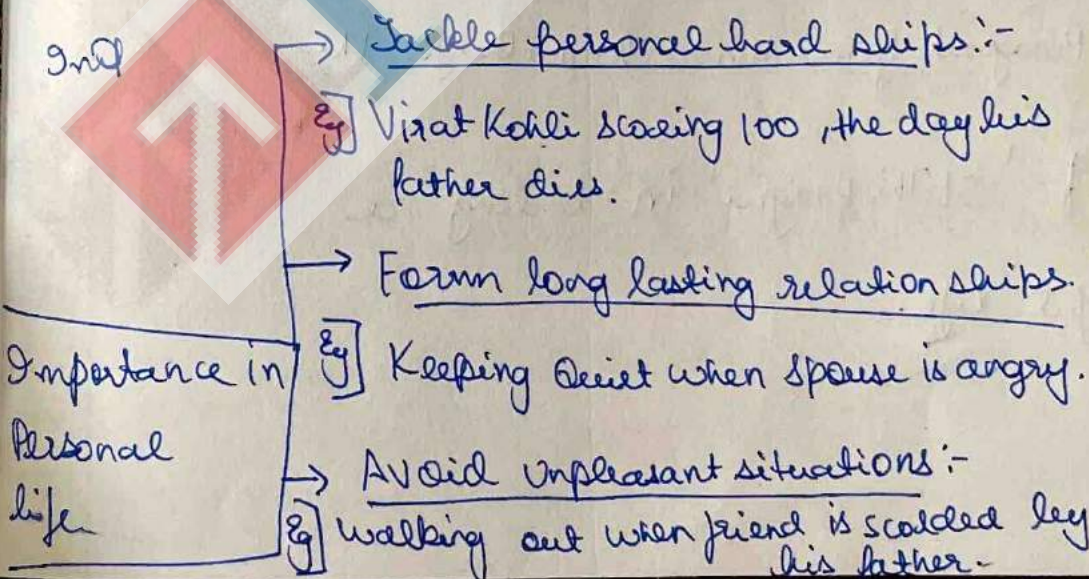 → Tackle personal hard ships:-
Eg] Virat Kohli scoring 100, the day his
father dies.
→ Form long lasting relation ships.
Importance in
Personal
life
Eg] Keeping Quiet when spouse is angry.
→ Avoid Unpleasant situations:-
Eg] Walking out when friend is scolded by
his father-